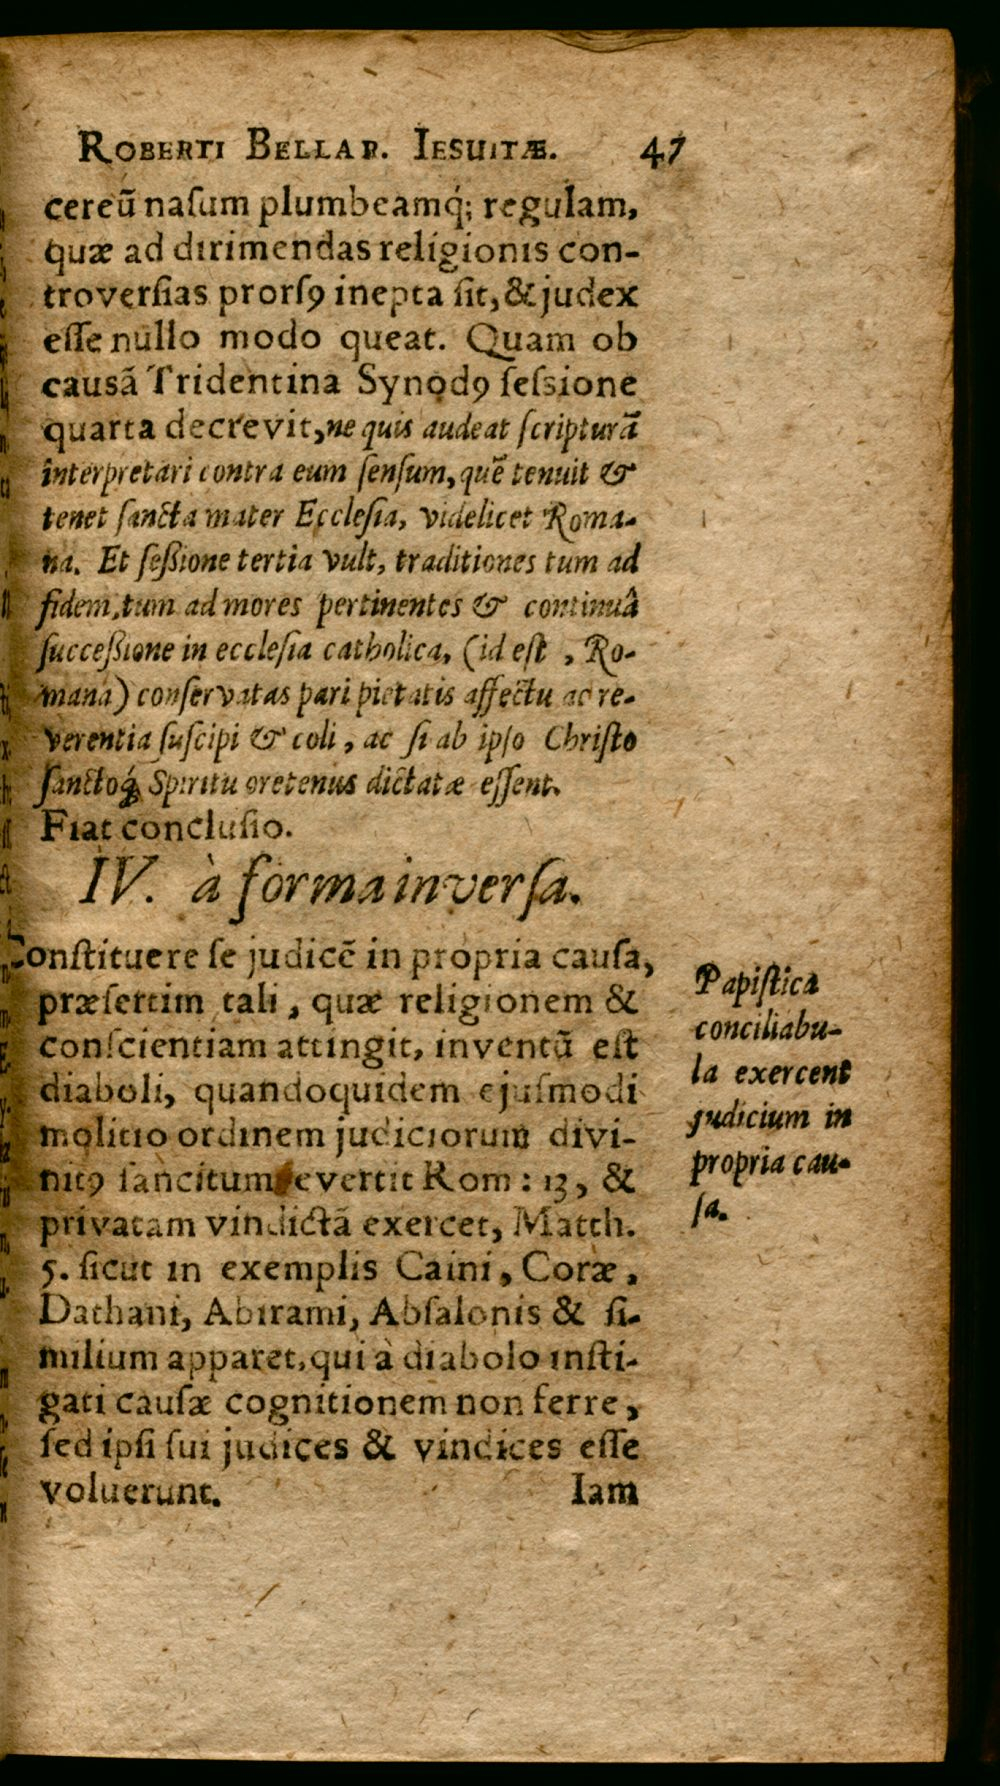 ROBERTI BELLAR. IESUITÆ. 47
cereũ naſum plumbeamq́; regulam,
quæ ad dirimendas religionis con-
troverſias prorſꝰ inepta ſit, & judex
eſſe nullo modo queat. Quam ob
causã Tridentina Synodꝰ ſeſsione
quarta decrevit, ne quis audeat ſcripturã
interpretari contra eum ſenſum, quẽ tenuit &
tenet ſancta mater Eccleſia, videlicet Roma-
na. Et ſeßione tertia vult, traditiones tum ad
fidem, tum ad mores pertinentes & continuâ
ſucceßione in eccleſia catholica, (id eſt, Ro-
mana) conſervatas pari pietatis affectu ac re-
verentia ſuſcipi & coli, ac ſi ab ipſo Chriſto
ſanctoq́; Spiritu oretenus dictatæ eſſent.
Fiat concluſio.
IV. à forma inverſa.
Conſtituere ſe judicẽ in propria cauſa,
præſertim tali, quæ religionem &
conſcientiam attingit, inventũ eſt
diaboli, quandoquidem ejuſmodi
molitio ordinem judiciorum divi-
nitꝰ ſancitum evertit Rom: 13, &
privatam vindictã exercet, Matth.
5. ſicut in exemplis Caini, Coræ,
Dathani, Abirami, Abſalonis & ſi-
milium apparet, qui à diabolo inſti-
gati cauſæ cognitionem non ferre,
ſed ipſi ſui judices & vindices eſſe
voluerunt. Iam
Papiſtica
conciliabu-
la exercent
judicium in
propria cau-
ſa.